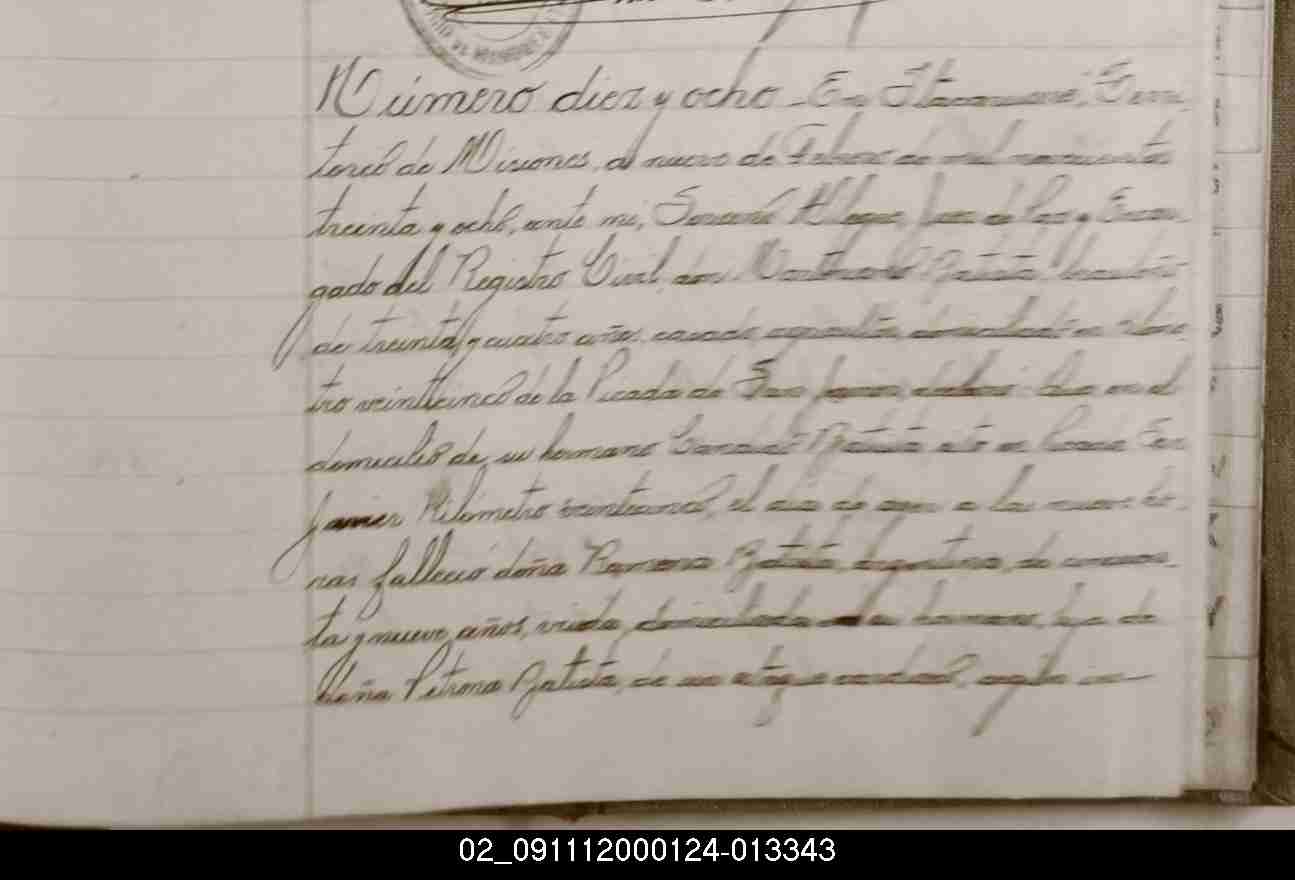 Número diez y ocho - En Itacaruaré, Terri-
torio de Misiones, a nueve de Febrero de mil novecientos
treinta y ocho, ante mi, Alegre, Juez de Paz y Encar-
gado del Registro Civil, don Batista, brasileño
de treinta y cuatro años, casado, agricultor, domiciliado en kilóme-
tro veinticinco de la Picada de San Javier, declaró: Que en el
domicilio de su hermano Batista, sito en Picada San
Javier Kilómetro veinticinco, el día de ayer a las nueve ho-
ras falleció doña Ramona Batista, argentina, de cincuen-
ta y nueve años, viuda, domiciliada su hermano, hija de
doña Petrona Batista, de un ataque cardíaco, según
02_091112000124-013343